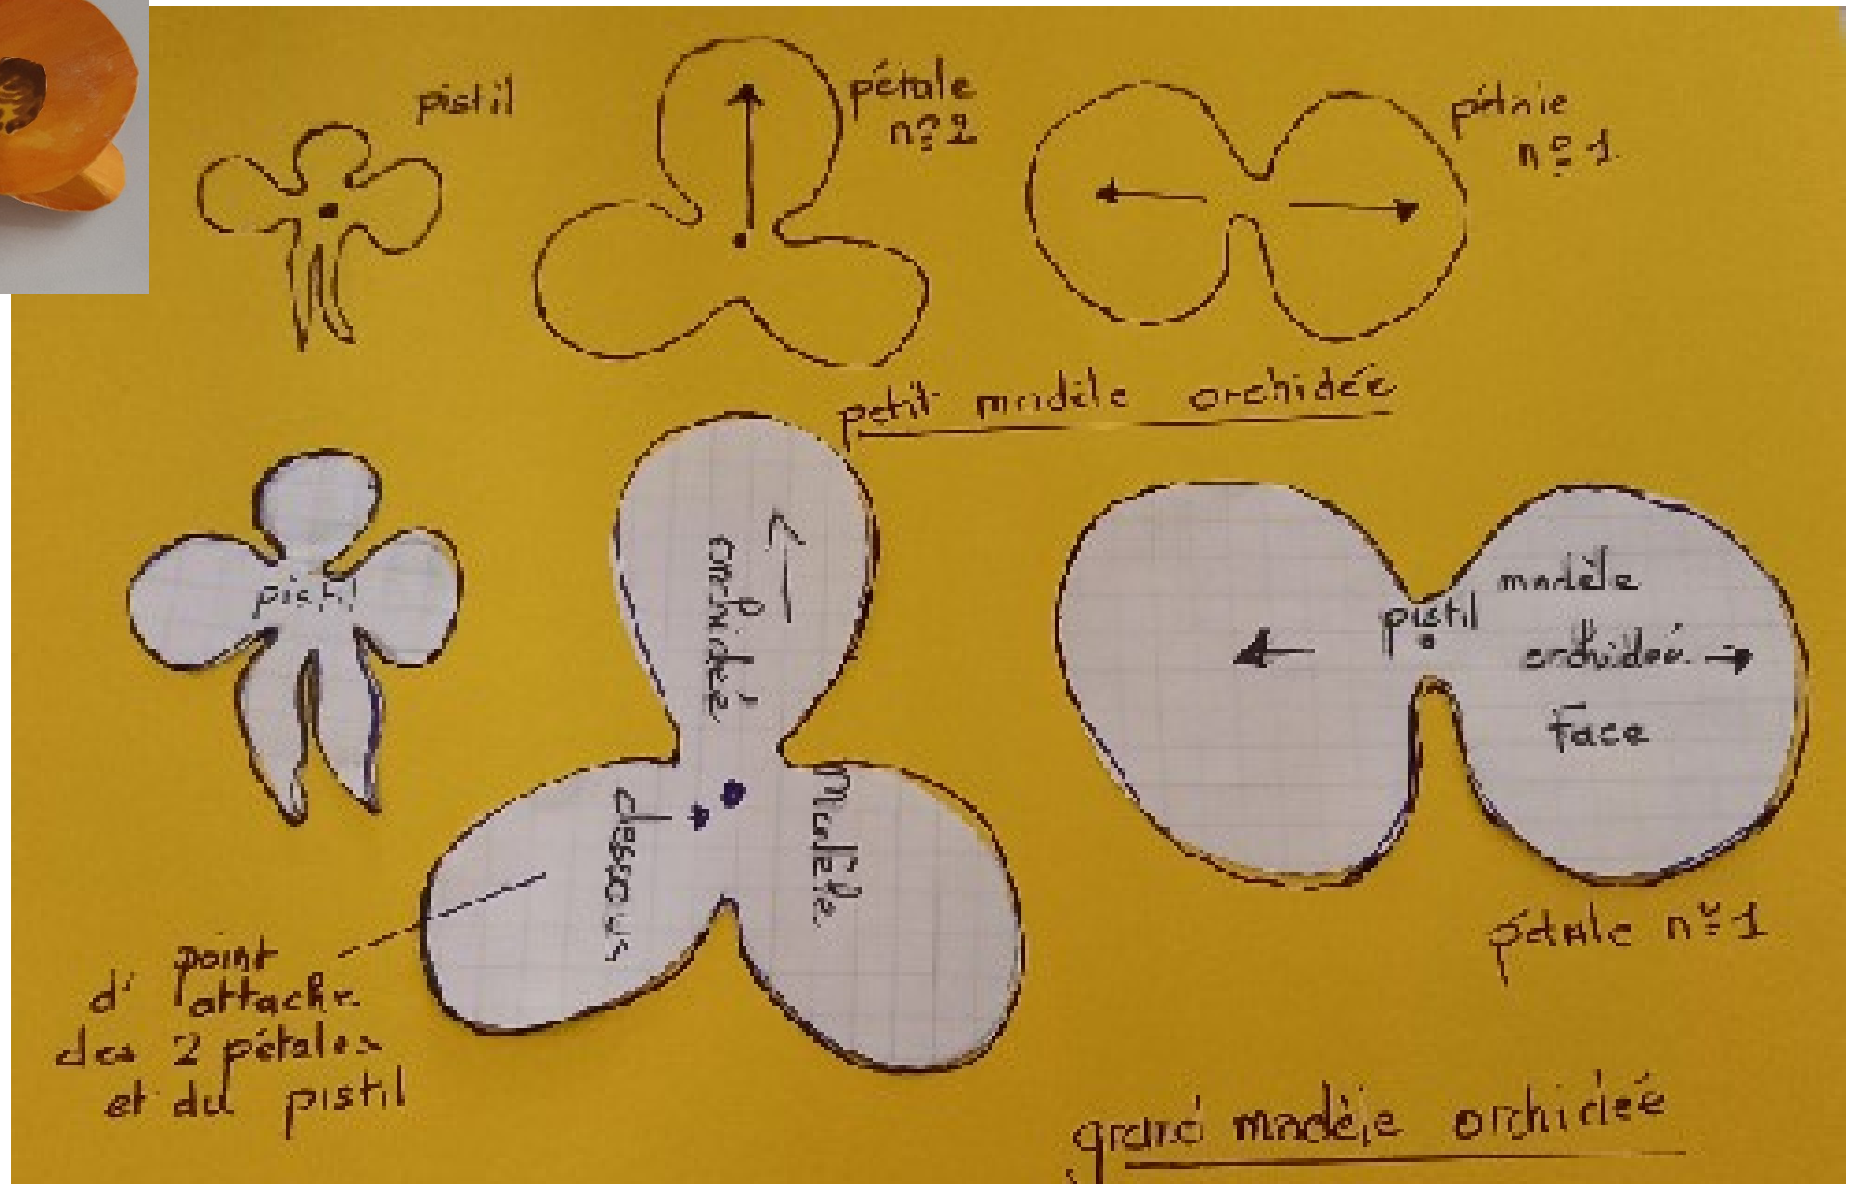 pistil
pétale
nº2
pétale
nº1
petit modèle orchidée
pistil
orchideé
Modèle
dessous
pistil
modèle
orchideé
Face
pétale nº1
point
d'attache
des 2 pétales
et du pistil
grand modèle orchideé